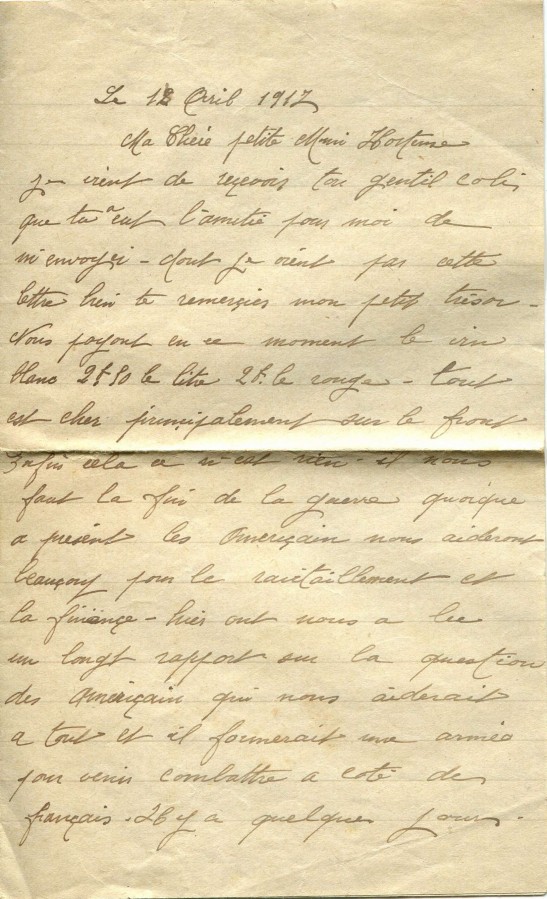 Le 12 Avril 1917
Ma Chère petite Mimi Hortense
je vient de reçevoir ton gentil colis
que tu a eut l'amitié pour moi de
m'envoyçi - dont je vient par cette
lettre bien te remerçies mon petit trésor -
Nous payont en ce moment le vin
blanc 2f50 le litre 2f. le rouge - tout
est cher prinçipalement sur le front
Enfin cela ce n'est rien - il nous
faut la fin de la guerre quoique
a présent les Ameriçain nous aideront
beauçoup pour le ravitaillement et
la finançe - hier ont nous a lue
un longt rapport sur la question
des Ameriçain qui nous aiderait
a tout et il formerait une armée
pour venir combattre a coté des
français. Il y a quelques jours -